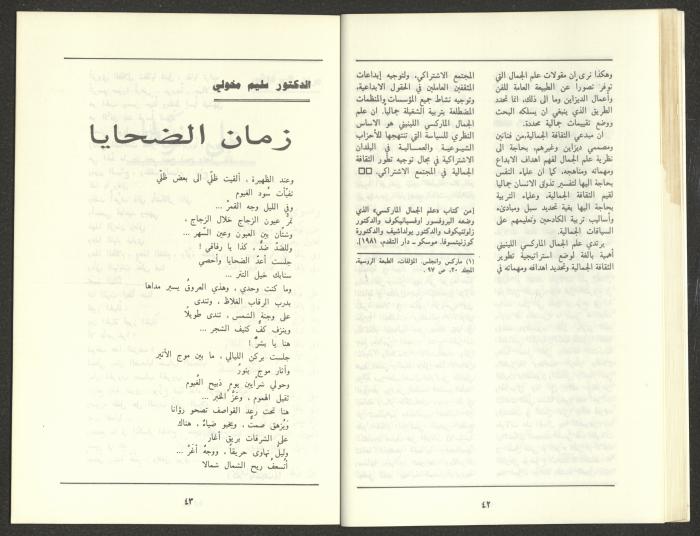 وهكذا نرى ان مقولات علم الجمال التي
توفر تصوراً عن الطبيعة العامة للفن
وأعمال الديزاين وما الى ذلك، انما تحدد
الطريق الذي ينبغي ان يسلكه البحث
ووضع تقييمات جمالية محددة.
ان مبدعي الثقافة الجمالية، من فنانين
ومصممي ديزاين وغيرهم، بحاجة الى
نظرية علم الجمال لفهم اهداف الابداع
ومهماته ومناهجه، كما ان علماء النفس
بحاجة اليها لتفسير تذوق الانسان جماليا
لقيم الثقافة الجمالية، وعلماء التربية
بحاجة اليها بغية تحديد سبل ومبادىء
وأساليب تربية الكادحين وتعليمهم على
السياقات الجمالية.
يرتدي علم الجمال الماركسي اللينيني
أهمية بالغة لوضع استراتيجية تطوير
الثقافة الجمالية وتحديد اهدافه ومهماته في
المجتمع الاشتراكي، ولتوجيه إبداعات
المثقفين العاملين في الحقول الابداعية،
وتوجيه نشاط جميع المؤسسات والمنظمات
المضطلعة بتربية الشغيلة جمالياً. ان علم
الجمال الماركسي اللينيني هو الاساس
النظري للسياسة التي تنتهجها للأحزاب
الشيوعية والعمالية في البلدان
الاشتراكية في مجال توجيه تطور الثقافة
الجمالية في المجتمع الاشتراكي. □□
[من كتاب «علم الجمال الماركسي» الذي
وضعه البروفسور اوفسيانيكوف والدكتور
زاوتنيكوف والدكتور يولداشيف والدكتورة
كوزنيتسوفا. موسكو ـ دار التقدم، ١٩٨١].
(١) ماركس وانجلس. المؤلفات، الطبعة الروسية،
المجلد ٢٠، ص ٩٧.
٤٢
الدكتور سليم مخولي
زمان الضحايا
وعند الظهيرة، ألقيت ظلّي الى بعض ظلّي
تفيّأت سُود الغيوم
وفي الليل وجه القمرْ ...
تمرُّ عيون الزجاج خلال الزجاج،
وشتّان بين العيون وعين السَّهر ...
وللضدّ ضدٌّ، كذا يا رفاقي!
جلست أعدّ الضحايا وأحصي
سنابك خيل التتر ...
وما كنت وحدي، وهذي العروق يسير مداها
بدرب الرقاب الغلاظ، وتندى
على وجنة الشمس، تندى طويلاً
وينزف كفٌّ كثيف الشجر ...
هنا يا بشرْ!
جلست بركن الليالي، ما بين موج الأثير
وأنار موج بنورْ
وحولي شرايين يوم ذبيح الغيوم
ثقيل الهموم، وعزّ الخبر ...
هنا تحت رعد القواصف تصحو رؤانا
ويُزهق صمتٌ، ويحبو ضياءٌ، هناك
على الشرفات بريق أغار
وليل تهاوى حريقاً، ووجهٌ أغرّ ...
أتسعفُ ريح الشمال شمالا
٤٣